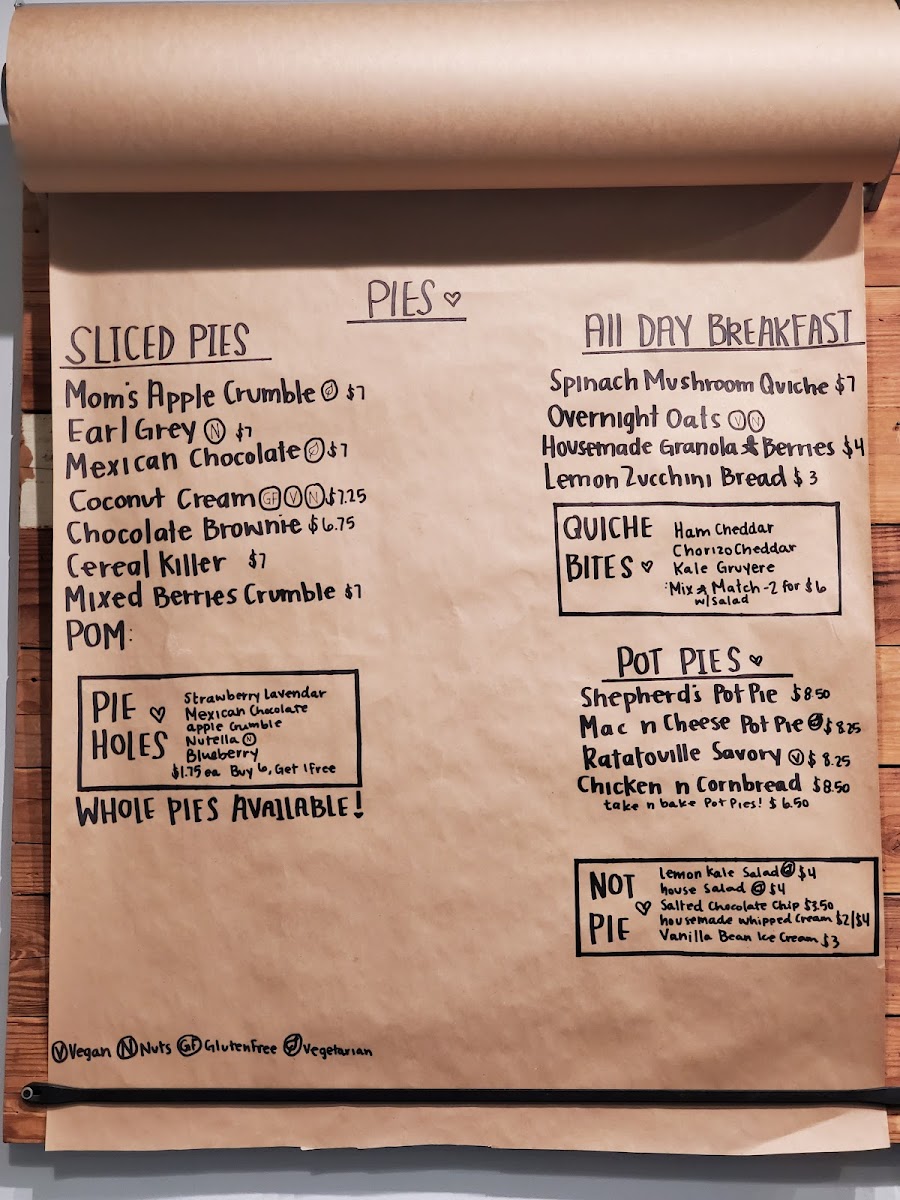 PIES ♡
SLICED PIES
Mom's Apple Crumble $7
Earl Grey Ⓝ $7
Mexican Chocolate $7
Coconut Cream GF Ⓥ Ⓝ $7.25
Chocolate Brownie $6.75
Cereal Killer $7
Mixed Berries Crumble $7
POM:
PIE ♡ HOLES
Strawberry Lavendar
Mexican Chocolate
apple Crumble
Nutella Ⓝ
Blueberry
$1.75 ea Buy 6, Get 1 free
WHOLE PIES AVAILABLE!
All DAY BREAKFAST
Spinach Mushroom Quiche $7
Overnight Oats Ⓥ Ⓝ
Housemade Granola & Berries $4
Lemon Zucchini Bread $3
QUICHE
BITES ♡
Ham Cheddar
Chorizo Cheddar
Kale Gruyere
:Mix & Match - 2 for $6
w/salad
POT PIES ♡
Shepherd's Pot Pie $8.50
Mac n Cheese Pot Pie $8.25
Ratatouille Savory Ⓥ $8.25
Chicken n Cornbread $8.50
take n bake Pot Pies! $6.50
NOT ♡
PIE
Lemon Kale Salad $4
house Salad $4
Salted Chocolate Chip $3.50
housemade whipped cream $2|$4
Vanilla Bean Ice Cream $3
Ⓥ Vegan Ⓝ Nuts GF Gluten Free Vegetarian